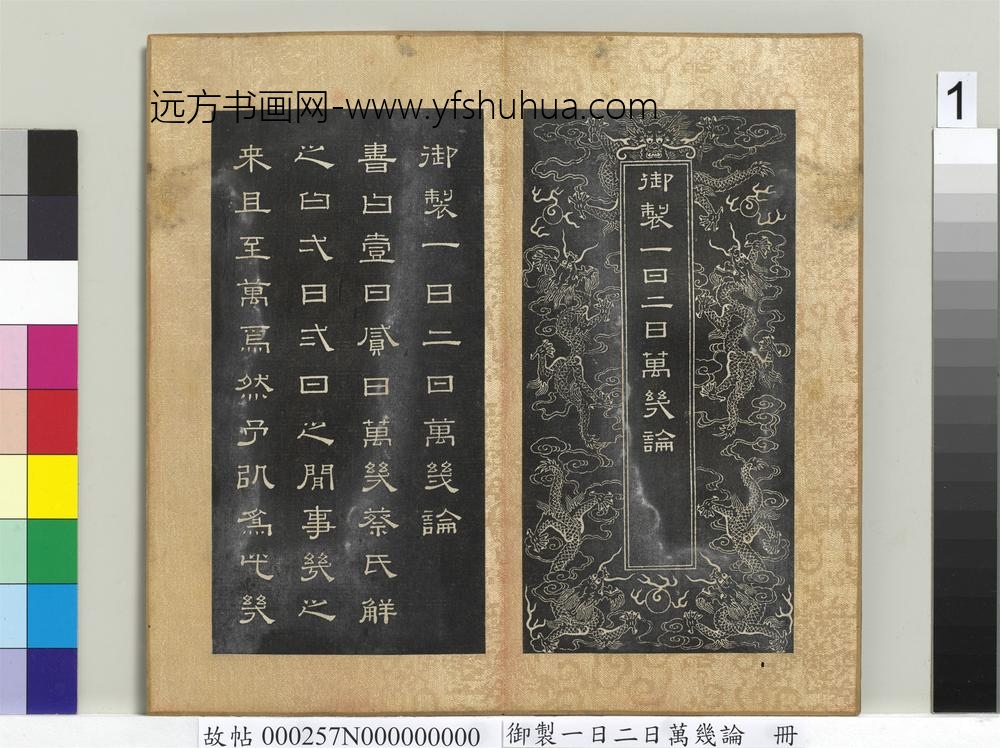 远方书画网-www.yfshuhua.com
1
御製一日二日萬幾論
御製一日二日萬幾論
書曰壹日貳日萬幾蔡氏解
之曰弌日弍日之閒事幾之
来且至萬焉然予以爲此幾
故帖 000257N000000000
御製一日二日萬幾論 冊